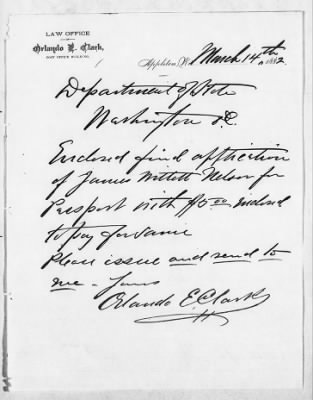 LAW OFFICE
OF
Orlando E. Clark,
POST OFFICE BUILDING.
Appleton, Wis. March 14th 1882
Department of State
Washington D.C.
Enclosed find application
of James Nelson for
Passport with $5.00 enclosed
to pay for same
Please issue and send to
me - Yours
Orlando E. Clark